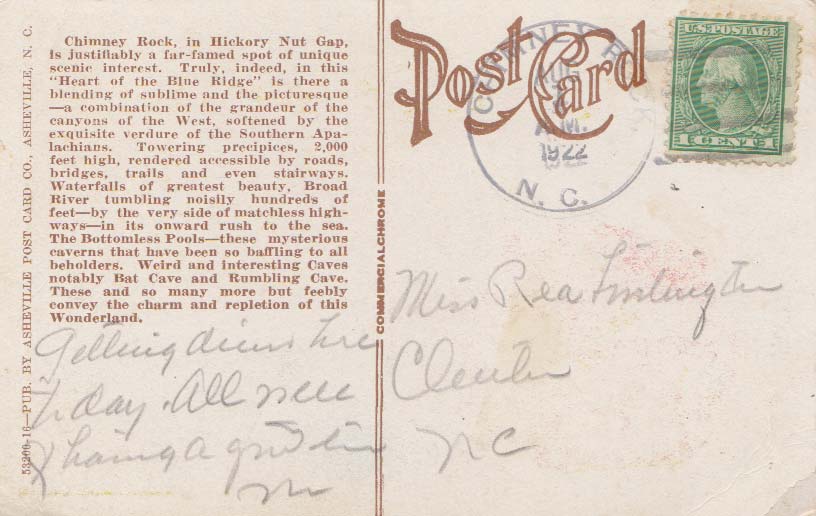 Chimney Rock, in Hickory Nut Gap,
is justifiably a far-famed spot of unique
scenic interest. Truly, indeed, in this
"Heart of the Blue Ridge" is there a
blending of sublime and the picturesque
—a combination of the grandeur of the
canyons of the West, softened by the
exquisite verdure of the Southern Apa-
lachians. Towering precipices, 2,000
feet high, rendered accessible by roads,
bridges, trails and even stairways.
Waterfalls of greatest beauty, Broad
River tumbling noisily hundreds of
feet—by the very side of matchless high-
ways—in its onward rush to the sea.
The Bottomless Pools—these mysterious
caverns that have been so baffling to all
beholders. Weird and interesting Caves
notably Bat Cave and Rumbling Cave.
These and so many more but feebly
convey the charm and repletion of this
Wonderland.
53200-16—PUB. BY ASHEVILLE POST CARD CO., ASHEVILLE, N. C.
Getting
day. All well
& having a good time
COMMERCIALCHROME
Post Card
CHIMNEY ROCK
AUG
A.M.
1922
N. C.
U.S. POSTAGE
1 CENT 1
Miss Rea
NC